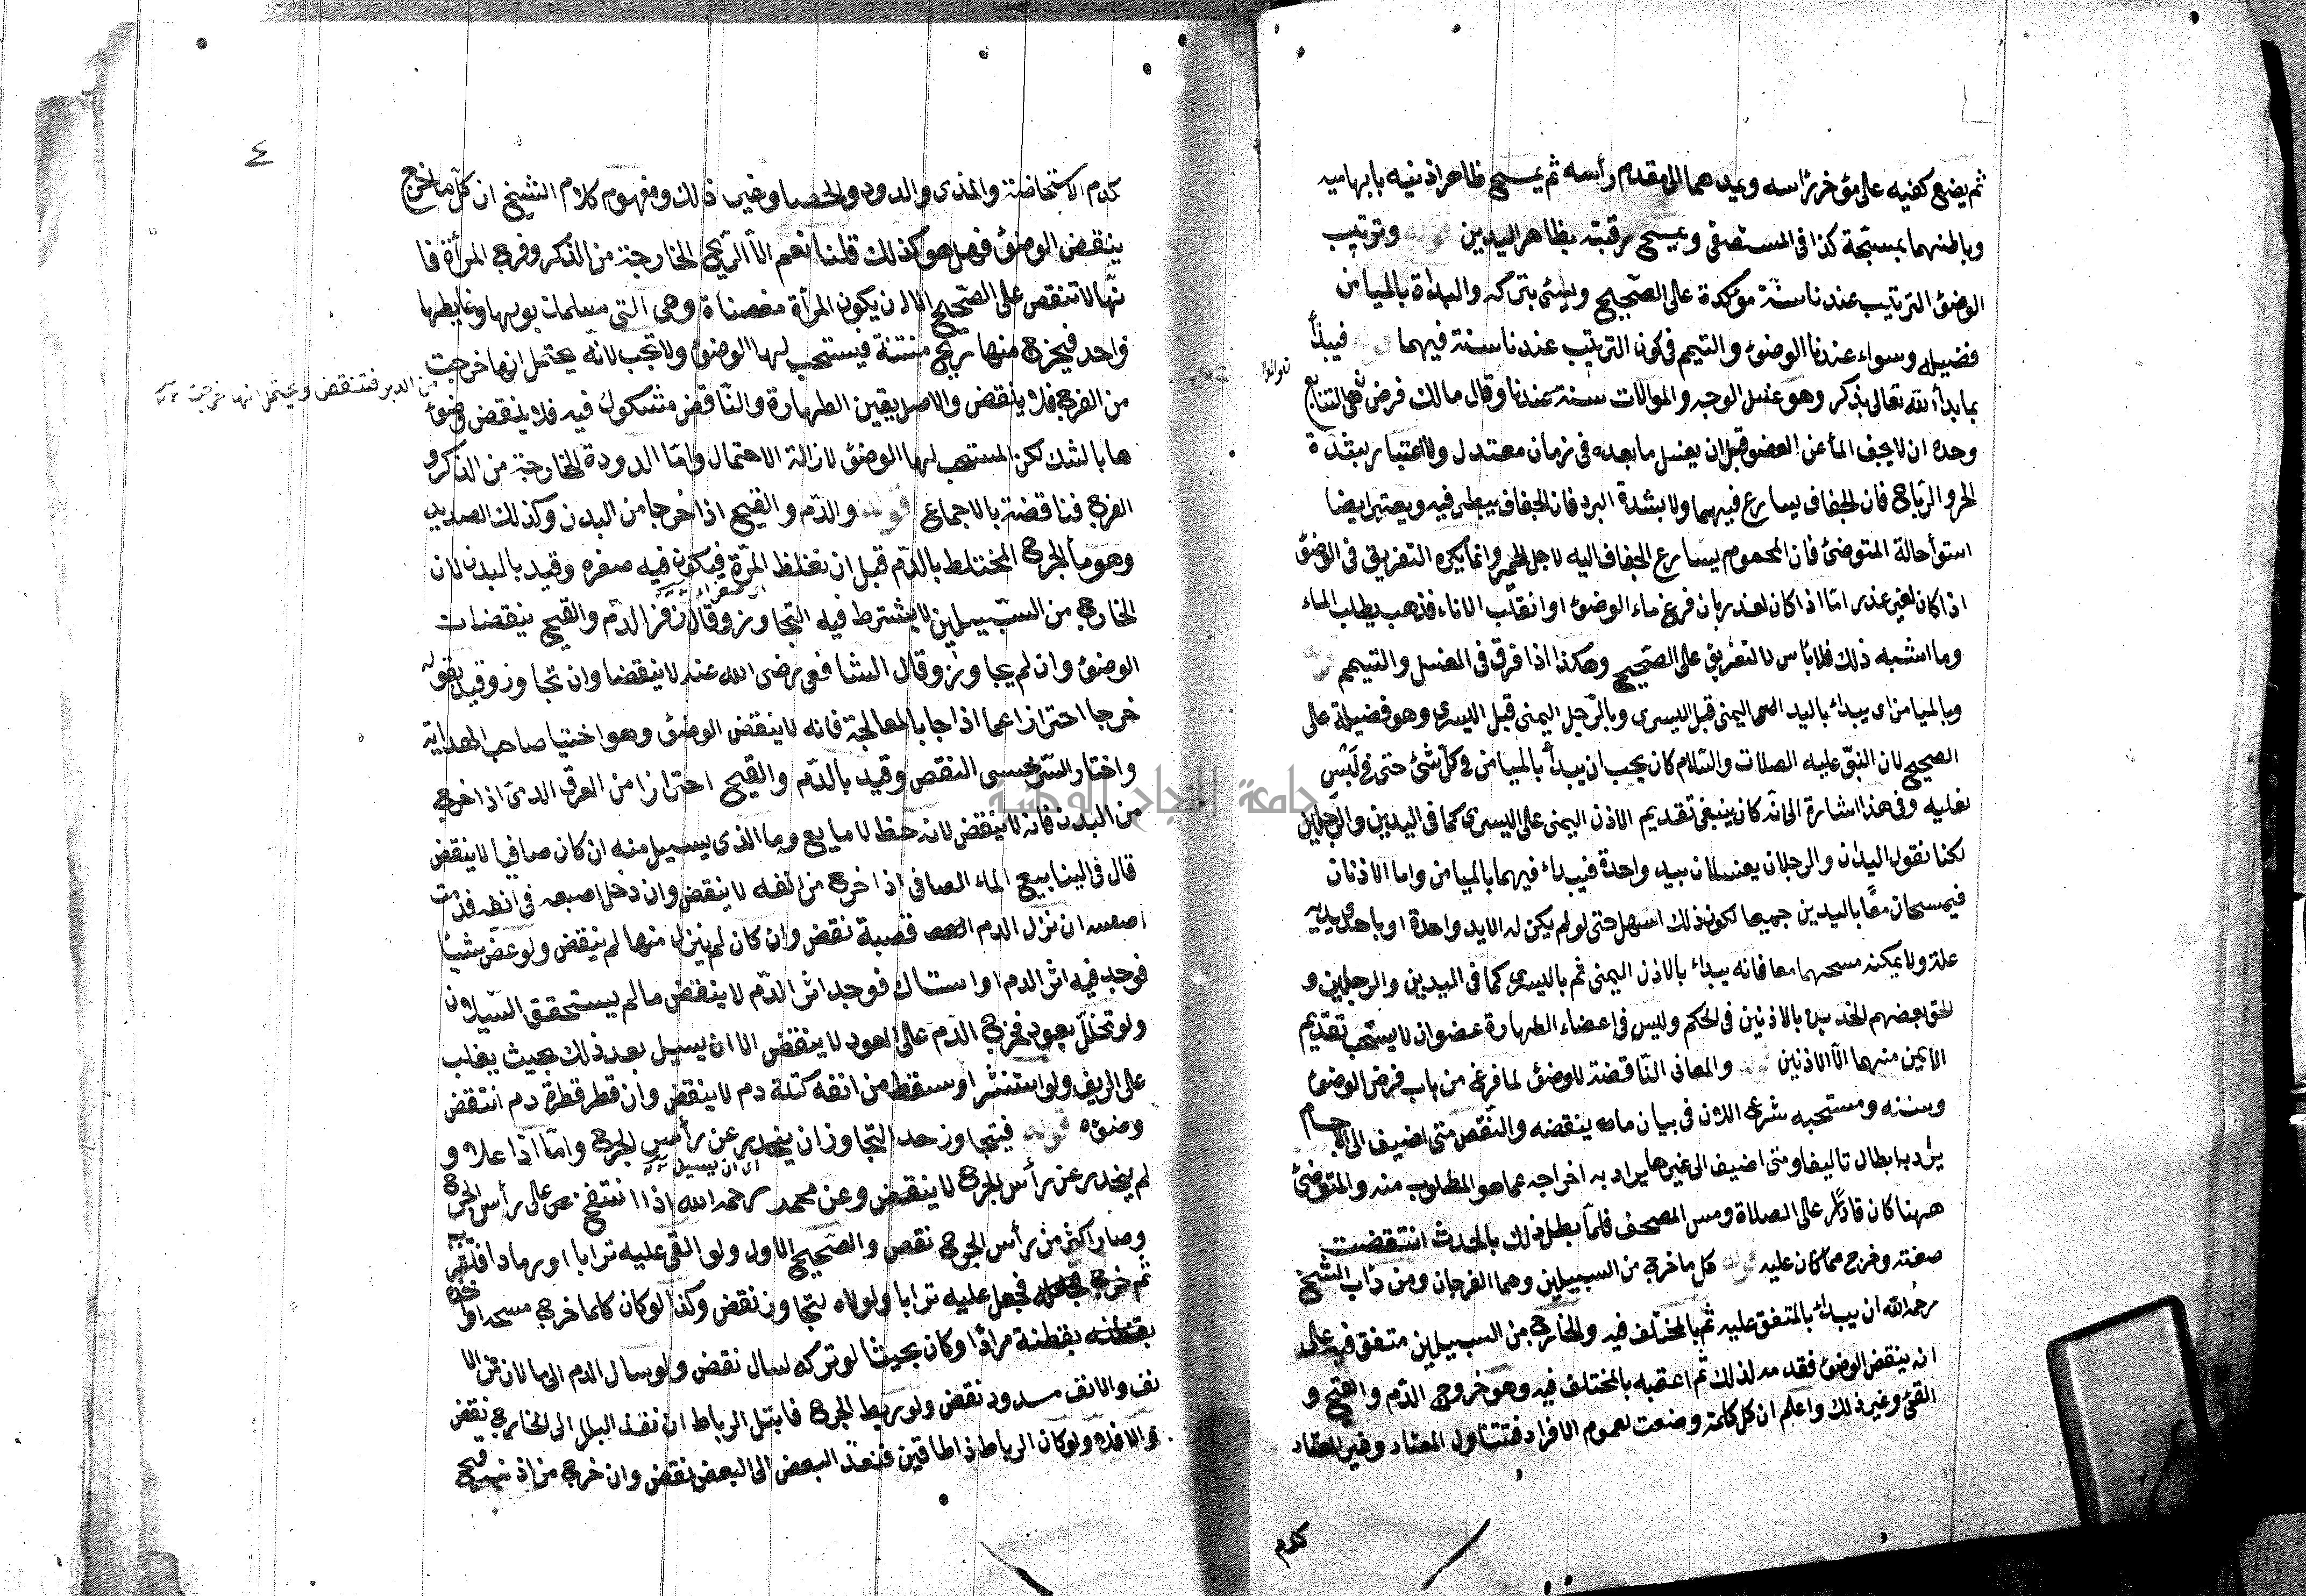 ثم يضع كفيه على مؤخر رأسه ويمدهما الى مقدم رأسه ثم يمسح ظاهر اذنيه بابهاميه
وباطنهما بمسبّحة كذا فى المستصفى ويمسح رقبته بظاهر اليدين قوله وترتيب
الوضؤ الترتيب عندنا سنّة مؤكدة على الصّحيح ويسئ بتركه والبداة بالميامن
فضيله وسواء عندنا الوضؤ والتيمم فى كون الترتيب عندنا سنة فيهما قوله فيبدأ
بما بدأ الله تعالى بذكر وهو غسل الوجه والموالات سنة عندنا وقال مالك فرض هى التتابع
وحده ان لا يجف المأ عن العضو قبل ان يغسل ما بعده فى زمان معتدل ولا اعتبار بشدة
الحر والرياح فان الجفاف يسارع فيهما ولا بشدة البرد فان الجفاف يبطى فيه ويعتبر ايضا
استوأ حالة المتوضئ فان المحموم يسارع الجفاف اليه لاجل الحمى وانما يكره التفريق فى الوضؤ
اذا كان لغير عذر امّا اذا كان لعذر بان فرغ ماء الوضؤ او انقلب الاناء فذهب يطلب الماء
وما اشبه ذلك فلا بأس بالتفريق على الصّحيح وهكذا اذا فرق فى الغسل والتيمم قوله
وبالميامن اى يبدأ باليد اليمنى قبل اليسرى وبالرّجل اليمنى قبل اليسرى وهو فضيلة على
الصحيح لان النبّى عليه الصلات والسّلام كان يحب ان يبدأ بالميامن فى كلّ شئ حتى فى لبس
نعليه وفى هذا اشارة الى انّه كان ينبغى تقديم الاذن اليمنى على اليسرى كما فى اليدين والرّجلين
لكنا نقول اليدان والرجلان يغسلان بيد واحدة فيبدأ فيهما بالميامن واما الاذنان
فيمسحان معًا باليدين جميعا لكون ذلك اسهل حتى لو لم يكن له الا يد واحدة او باحدى يديه
علة ولا يمكنه مسحهما معا فانه يبدأ بالاذن اليمنى ثم باليسرى كما فى اليدين والرجلين و
الحق بعضهم الخدين بالاذنين فى الحكم وليس فى اعضاء الطهارة عضوان لا يستحب تقديم
الايمن منهما الّا الاذنين قوله والمعانى النّاقضة للوضؤ لما فرغ من باب فرض الوضؤ
وسننه ومستحبه شرع الان فى بيان ما ينقضه والنّقض متى اضيف الى الاجسام
يراد به ابطال تاليفها ومتى اضيف الى غيرها يراد به اخراجه عما هو المطلوب منه والمتوضئ
ههنا كان قادرًا على الصلاة ومس المصحف فلمّا بطل ذلك بالحدث انتقضت
صفته وخرج عما كان عليه قوله كل ما خرج من السبيلين وهما الفرجان ومن دأب الشيخ
رحمه الله ان يبدأ بالمتفق عليه ثم بالمختلف فيه والخارج من السبيلين متفق فيه على
انه ينقض الوضؤ فقدمه لذلك ثم اعقبه بالمختلف فيه وهو خروج الدّم والقيح و
القئ وغير ذلك واعلم ان كل كلمة وضعت لعموم الافراد فتتناول المعتاد وغير المعتاد
كدم
٤
كدم الاستحاضة والمذى والدود والحصا وغير ذلك ومفهوم كلام الشيخ ان كلّ ما خرج
ينقض الوضؤ فهل هو كذلك قلنا نعم الّا الرّيح الخارجة من الذكر وفرج المرأة فا
نّها لا تنقض على الصّحيح الا ان يكون المرأة مفضاة وهى التى مسلك بولها وغايطها
واحد فيخرج منها ريح منتنة فيستحب لها الوضؤ ولا تجب لانه يحتمل انها خرجت
من الدبر فتنقض ويحتمل انها خرجت
من الفرج فلا ينقض والاصل يقين الطهارة والنّاقض مشكوك فيه فلا ينقض وضوء
ها بالشك لكن المستحب لها الوضؤ لازالة الاحتمال وامّا الدودة الخارجة من الذكر و
الفرج فناقضة بالاجماع قوله والدّم والقيح اذا خرجا من البدن وكذلك الصديد
وهو مأ الجرح المختلط بالدّم قبل ان تغلظ المرّة فيكون فيه صفره وقيد بالبدن لان
الخارج من السّبيلين لا يشترط فيه التجاوز وقال زفر الدّم والقيح ينقضان
الوضؤ وان لم يجاوز وقال الشافعى رضى الله عنه لا ينقضا وان تجاوز وقيد بقوله
خرجا احترازا عما اذا خرجا بالمعالجة فانه لا ينقض الوضؤ وهو اختيا صاحب الهداية
واختار السّرخسى النقض وقيد بالدّم والقيح احترازا من العرق المدنى اذا خرج
من البدن فانه لا ينقض لانه خيط لا مايع وما الذى يسيل منه ان كان صافيا لا ينقض
قال فى الينابيع الماء الصافى اذا خرج من انفه لا ينقض وان دخل اصبعه فى انفه فدمت
اصبعه ان نزل الدم من قصبة نقض وان كان لم ينزل منها لم ينقض ولو عض شيئا
فوجد فيه اثر الدم او استاك فوجد اثر الدّم لا ينقض ما لم يستحقق السّيلان
ولو تخلّل بعود فخرج الدّم على العود لا ينقض الا ان يسيل بعد ذلك بحيث يغلب
على الريق ولو استنثر او سقط من انفه كتلة دم لا ينقض وان قطر قطرة دم انتقض
وضوءه قوله فيتجاوز حد التجاوز ان ينحدر عن رأس الجرح وامّا اذا علا و
لم ينحدر عن رأس الجرح لا ينقض وعن محمد رحمه الله اذا انتفخ على رأس الجرح
وصار اكثر من رأس الجرح نقض والصّحيح الاول ولو القى عليه ترابا او رمادا
ثم خرج فجعل عليه ترابا ولولاه لتجاوز نقض وكذا لو كان كلما خرج مسحه او
بقطنة مرارًا وكان بحيث لو تركه لسال نقض ولو سال الدم الى ما لان من الا
نف والانف مسدود نقض ولو ربط الجرح فابتل الرباط ان نفذ البلل الى الخارج نقض
والا فلا ولو كان الرباط ذا طاقين فنفذ البعض الى البعض نقض وان خرج من اذنه قيح
جامعة النجاح الوطنية